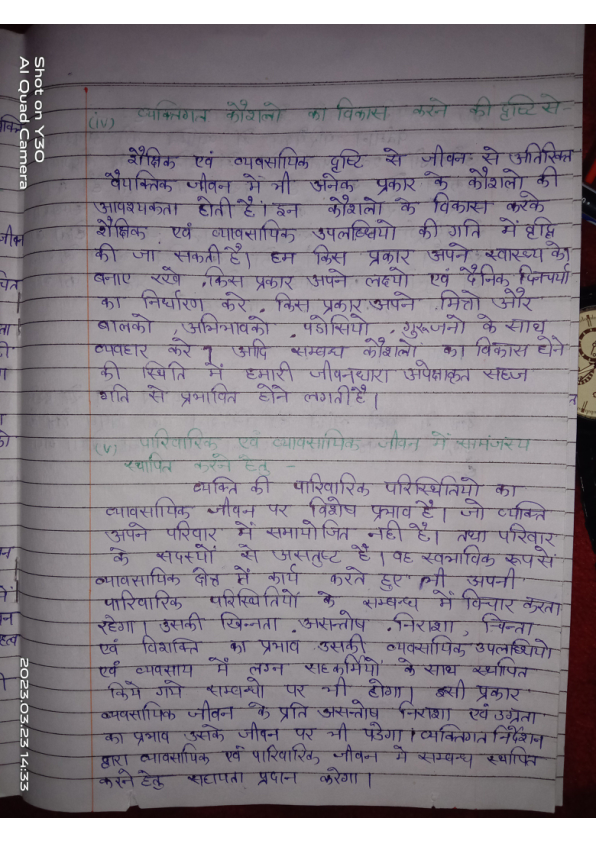 (iv) व्यक्तिगत कौशलो का विकास करने की दृष्टि से -
शैक्षिक एवं व्यवसायिक दृष्टि से जीवन से अतिरिक्त
वैयक्तिक जीवन में भी अनेक प्रकार के कौशलो की
आवश्यकता होती है। इन कौशलो के विकास करके
शैक्षिक एवं व्यावसायिक उपलब्धियो की गति में वृद्धि
की जा सकती है। हम किस प्रकार अपने स्वास्थ्य को
बनाए रखे, किस प्रकार अपने लक्ष्यो एवं दैनिक दिनचर्या
का निर्धारण करे, किस प्रकार अपने मित्रो और
बालको, अभिभावको, पडोसियो, गुरूजनो के साथ
व्यवहार करे ? आदि सम्बन्ध कौशलो का विकास होने
की स्थिति में हमारी जीवनधारा अपेक्षाकृत सहज
गति से प्रभावित होने लगती है।
(v) पारिवारिक एवं व्यावसायिक जीवन में सामंजस्य
स्थापित करने हेतु -
व्यक्ति की पारिवारिक परिस्थितियो का
व्यावसायिक जीवन पर विशेष प्रभाव है। जो व्यक्ति
अपने परिवार में समायोजित नही है। तथा परिवार
के सदस्यों से असतुष्ट है। वह स्वभाविक रूप से
व्यावसायिक क्षेत्र में कार्य करते हुए भी अपनी
पारिवारिक परिस्थितियों के सम्बन्ध में विचार करता
रहेगा। उसकी खिन्नता, असन्तोष, निराशा, चिन्ता
एवं विशक्ति का प्रभाव उसकी व्यवसायिक उपलब्धियो
एवं व्यवसाय में लग्न सहकर्मियो के साथ स्थापित
किये गये सम्बन्धो पर भी होगा। इसी प्रकार
व्यवसायिक जीवन के प्रति असन्तोष निराशा एवं उग्रता
का प्रभाव उसके जीवन पर भी पडेगा। व्यक्तिगत निर्देशन
द्वारा व्यावसायिक एवं पारिवारिक जीवन मे सम्बन्ध स्थापित
करने हेतु सहायता प्रदान करेगा।
Shot on Y30
AI Quad Camera
2023.03.23 14:33